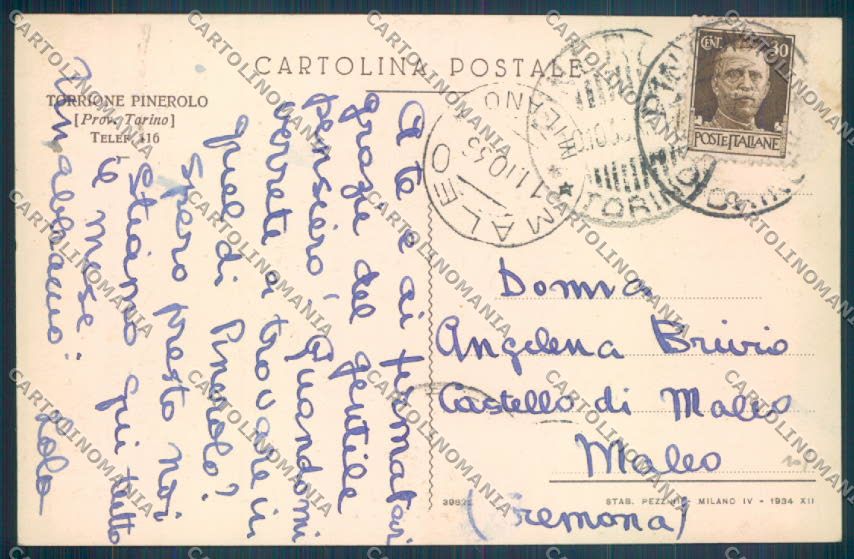 CARTOLINA POSTALE
TORRIONE PINEROLO
[Prov. Torino]
TELEF. 116
CENT. 30
POSTE ITALIANE
MALEO
MILANO
11.10.35
TORINO
A te e ai firmatari
grazie del gentile
pensiero! Quando mi
verrete a trovare in
quel di Pinerolo?
Spero presto noi
stiamo qui tutto
il mese
Un abbraccio:
Lola
Donna
Angelena Brivio
Castello di Maleo
Maleo
(Cremona)
STAB. PEZZINI - MILANO IV - 1934 XII
CARTOLINOMANIA